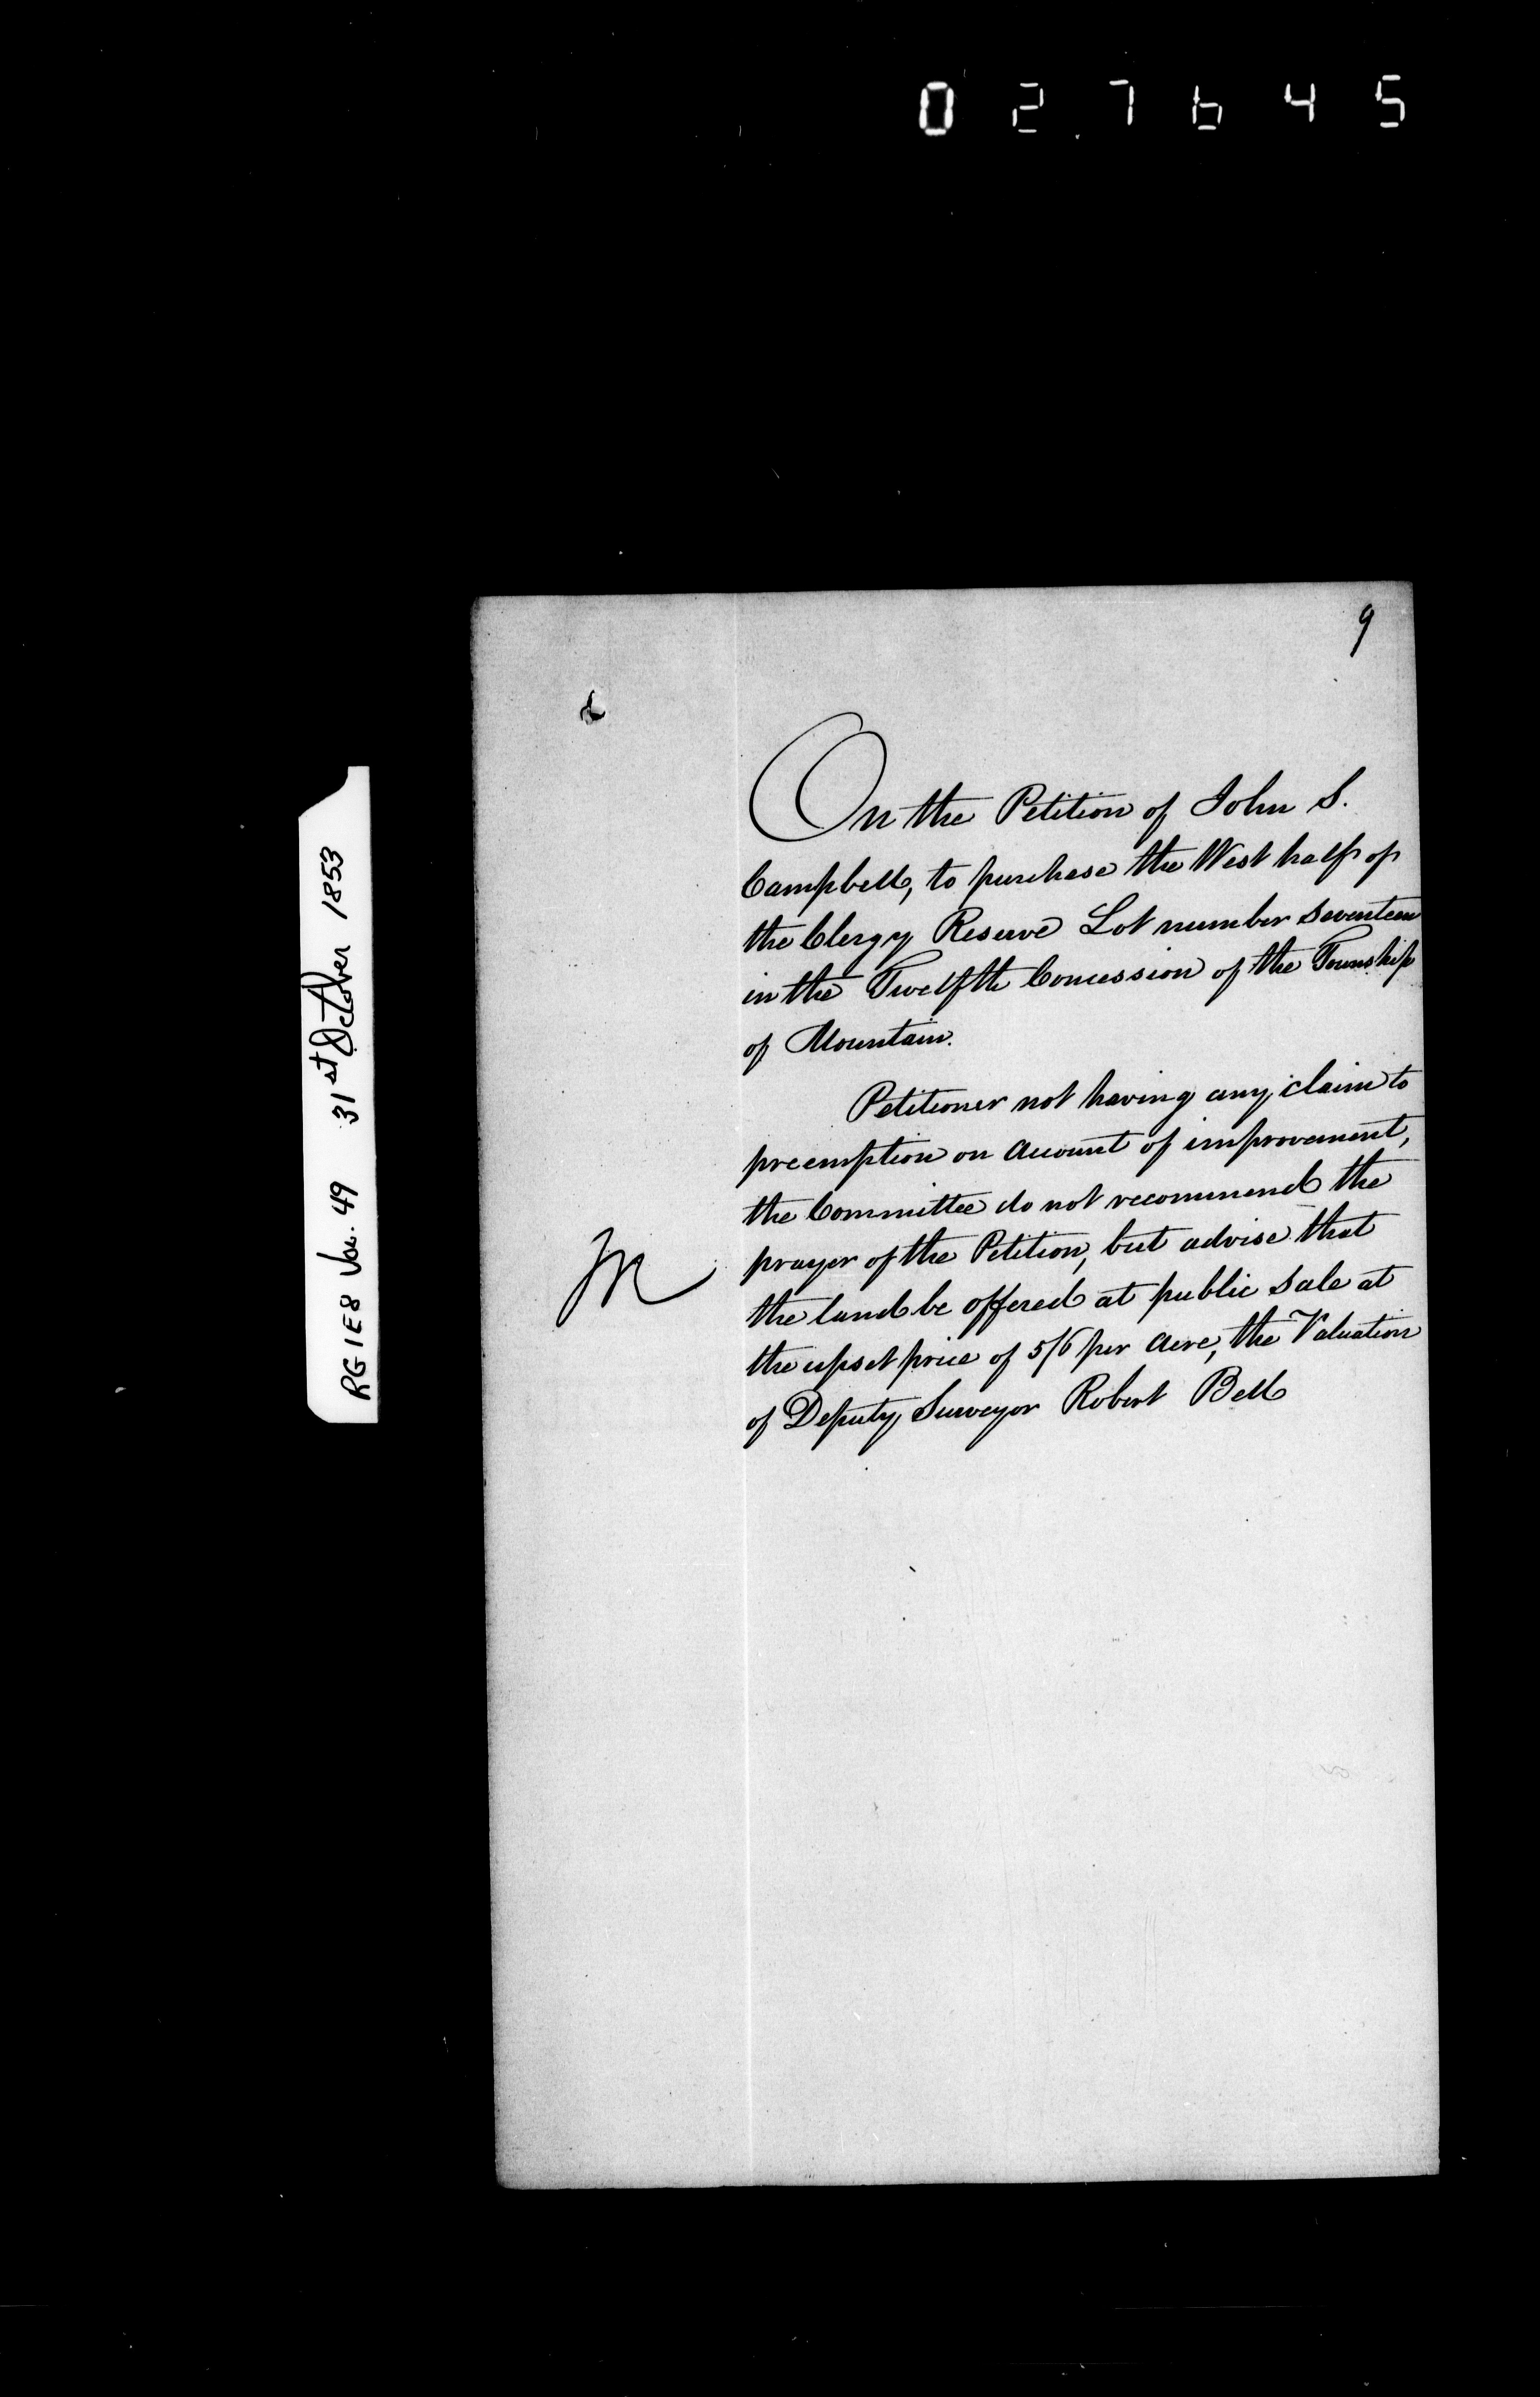 027645
9
On the Petition of John S.
Campbell, to purchase the West half of
the Clergy Reserve Lot number seventeen
in the Twelfth Concession of the Township
of Mountain.
Petitioner not having any claim to
preemption on account of improvement,
the Committee do not recommend the
prayer of the Petition, but advise that
the land be offered at public sale at
the upset price of 5/6 per acre, the Valuation
of Deputy Surveyor Robert Bell
RG 1 E8 Vol. 49 31st October 1853